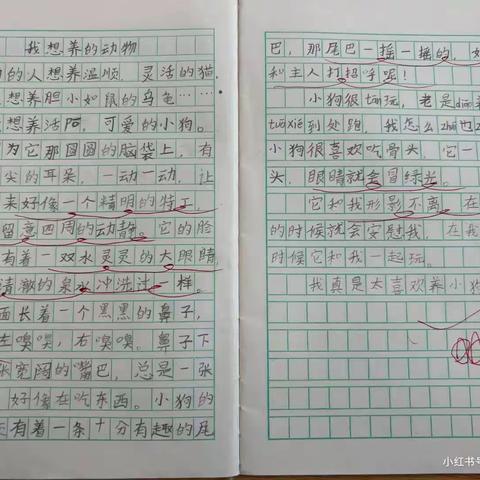 我想养的动物
的人想养温顺、灵活的猫,
想养胆小如鼠的乌龟……
想养活pō、可爱的小狗。
为它那圆圆的脑袋上,有
尖的耳朵,一动一动,让
来好像一个精明的特工,
留意四周的动静。它的脸
有着一双水灵灵的大眼睛,
清澈的泉水冲洗过一样。
面长着一个黑黑的鼻子,
左嗅嗅,右嗅嗅。鼻子下
张宽阔的嘴巴,总是一张
好像在吃东西。小狗的
还有着一条十分有趣的尾
巴,那尾巴一摇一摇的,好
和主人打招呼呢!
小狗很tān玩,老是diāo
tuōxié到处跑,我怎么zhuī也
小狗很喜欢吃骨头,它一
头,眼睛就会冒绿光。
它和我形影不离,在
的时候就会安慰我,在我
时候它和我一起玩。
我真是太喜欢养小狗
小红书号